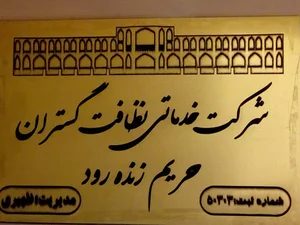 شرکت خدماتی نظافت گستران
حریم زنده رود
شماره ثبت: ۵۰۳۰۳
مدیریت: ظهیری